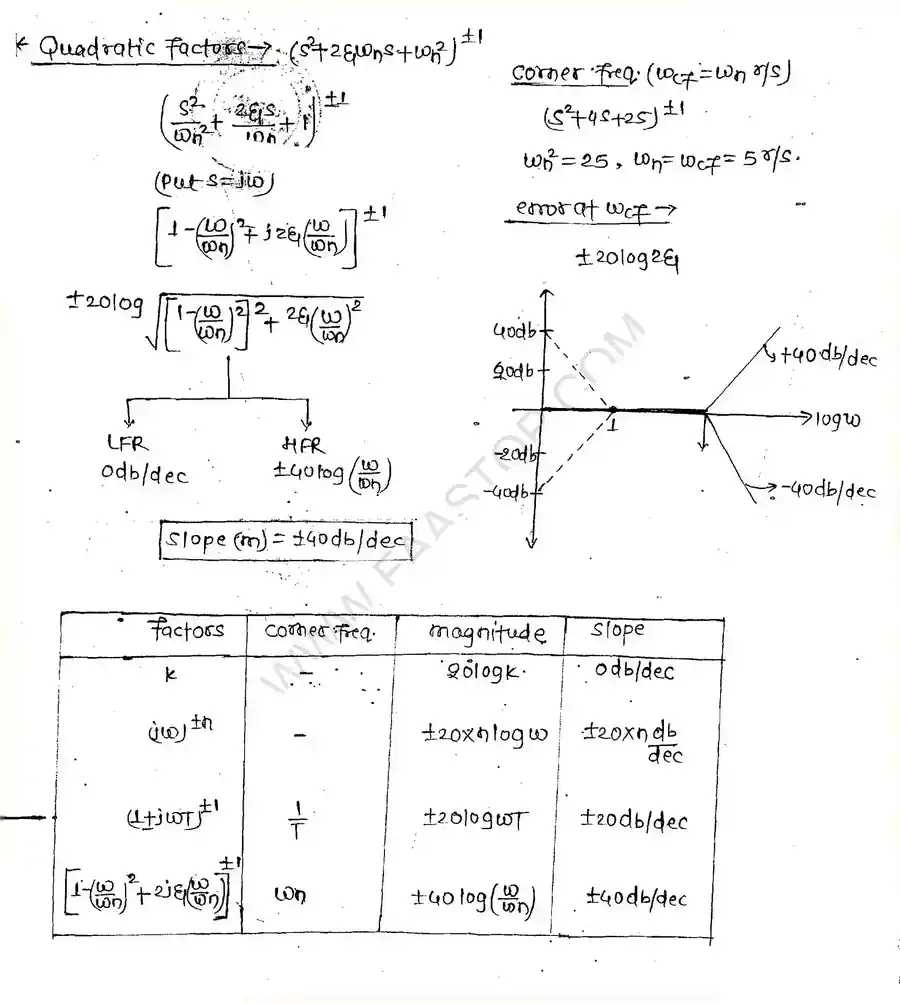 * Quadratic factors → (s²+2ξωns+ωn²)^±1
(s²/ωn² + 2ξs/ωn + 1)^±1
(Put s=jω)
[1-(ω/ωn)²+ j2ξ(ω/ωn)]^±1
±20log √([1-(ω/ωn)²]² + 2ξ(ω/ωn)²)
LFR
0db/dec
HFR
±40log(ω/ωn)
slope (m) = ±40db/dec
corner freq. (ωcf = ωn r/s)
(s²+4s+25)^±1
ωn² = 25, ωn = ωcf = 5 r/s.
error at ωcf →
±20log2ξ
40db
20db
-20db
-40db
1
logω
+40db/dec
-40db/dec
factors corner freq. magnitude slope
k - 20logk. 0db/dec
(jω)^±n - ±20×n logω ±20×n db/dec
(1±jωT)^±1 1/T ±20logωT ±20db/dec
[1-(ω/ωn)²+2jξ(ω/ωn)]^±1 ωn ±40log(ω/ωn) ±40db/dec
WWW.FAASTOP.COM